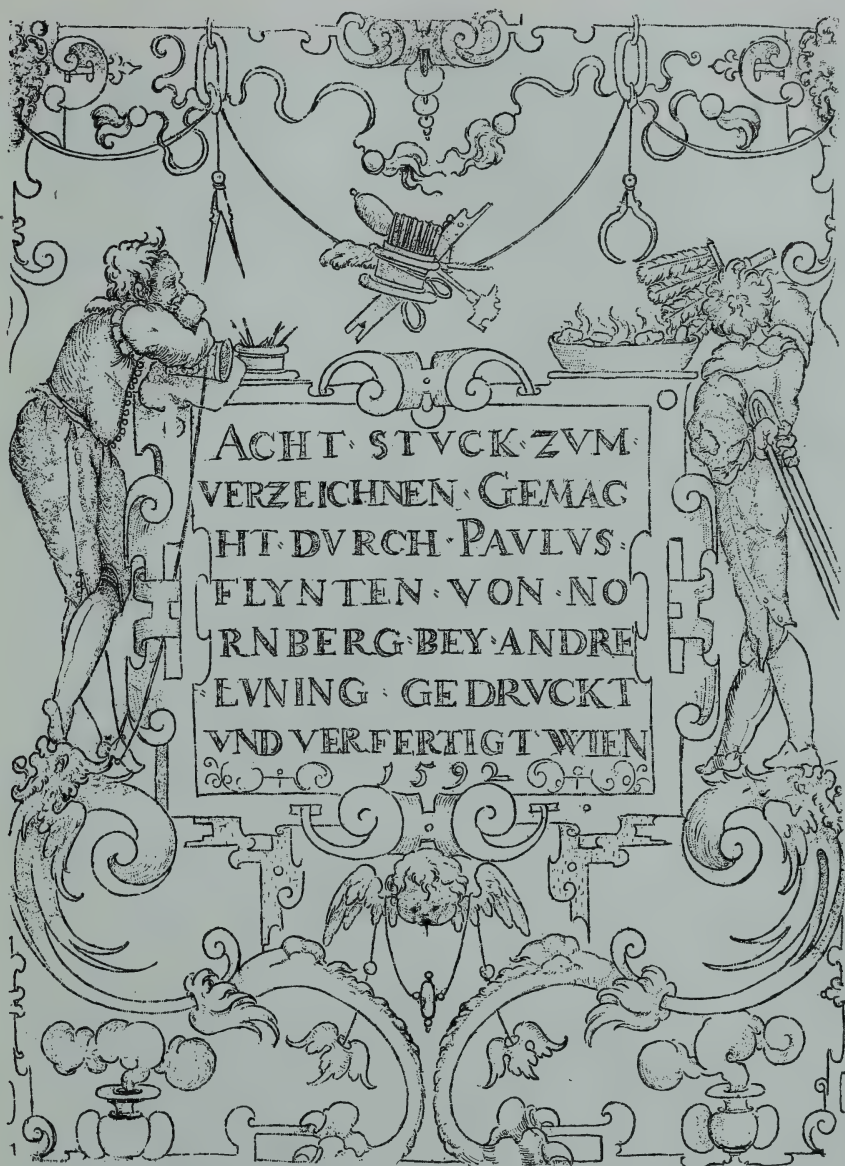 ACHT · STVCK · ZVM ·
VERZEICHNEN · GEMAC
HT · DVRCH · PAVLVS ·
FLYNTEN · VON · NO
RNBERG · BEY · ANDRE
LVNING · GEDRVCKT
VND VERFERTIGT WIEN
1592
1